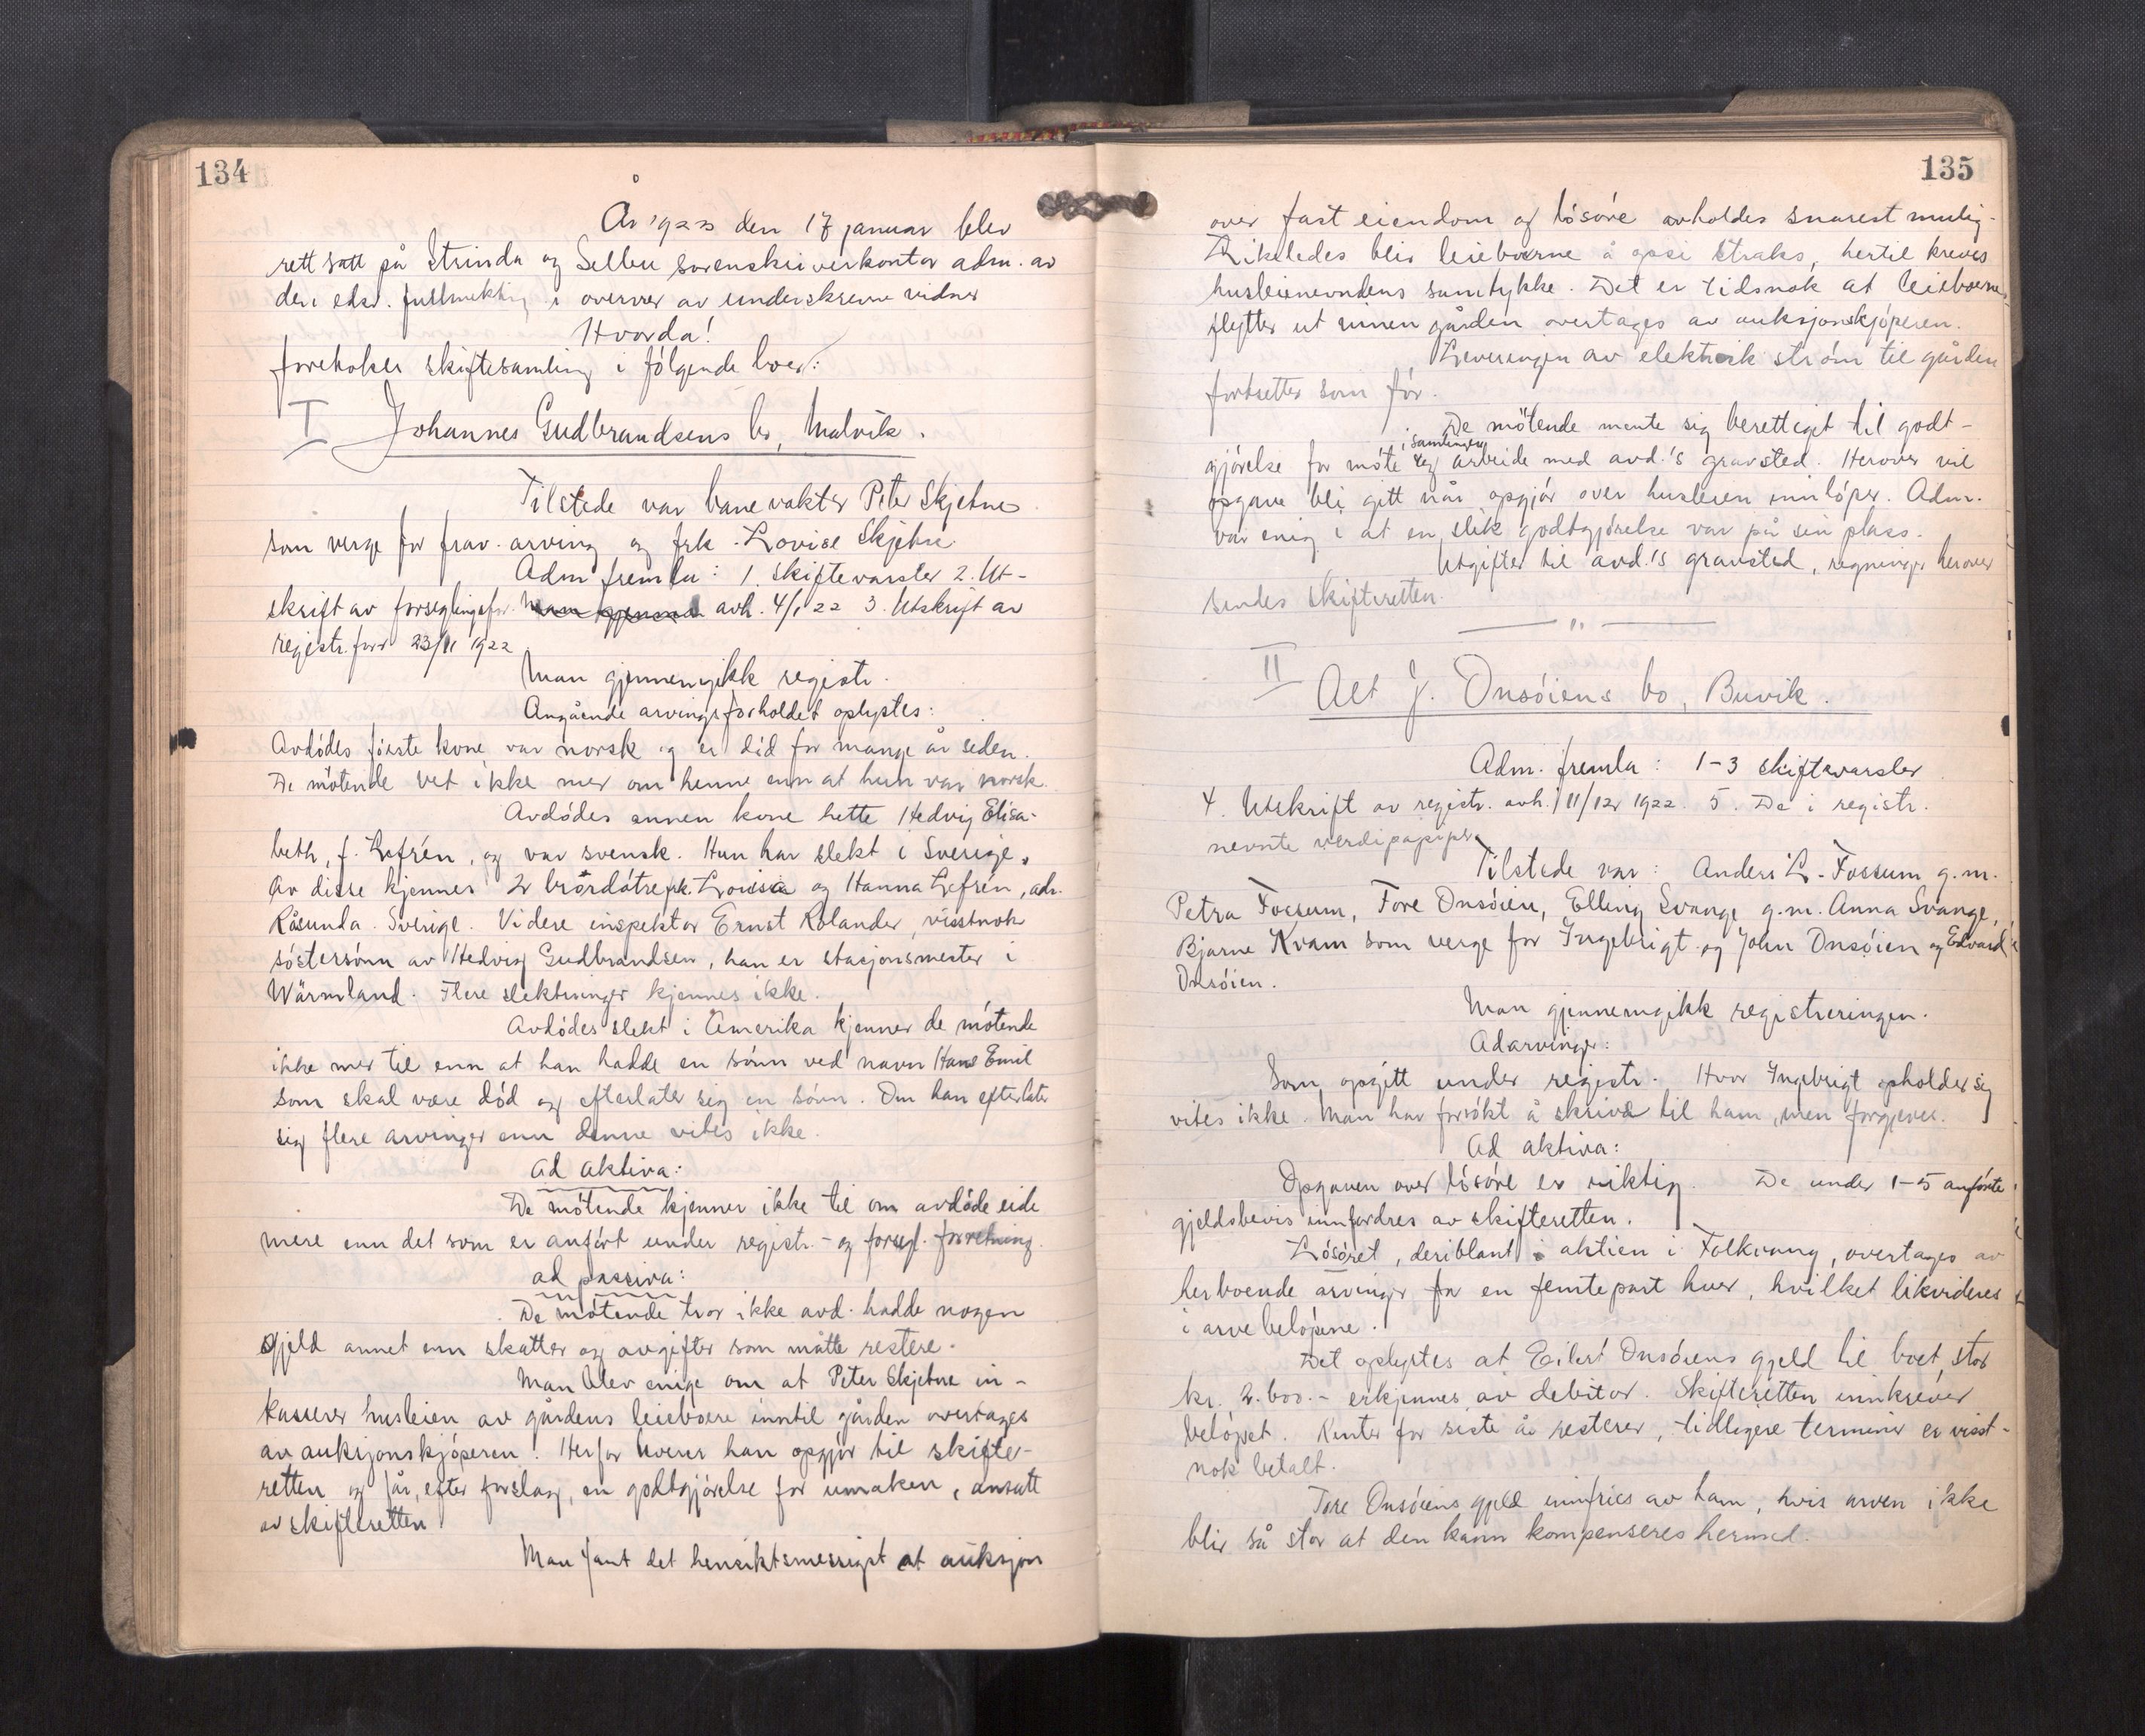 134
År 1923 den 17 januar blev
rett satt på Strinda og Selbu sorenskriverkontor adm. av
den edsv. fullmektig i overvær av underskrevne vidner
Hvorda!
foretokes skiftesamling i følgende boer:
I Johannes Gudbrandsens bo, Malvik.
Tilstede var banevokter Peter Skjetne
som verge for frav. arving og frk. Lovise Skjetne.
Adm fremla: 1. skiftevarsler 2. Ut-
skrift av forseglingsfor. avh. 4/1 22 3. Utskrift av
registr. forr 23/11 1922
Man gjennemgikk registr.
Angående arvingsforholdet oplystes:
Avdødes første kone var norsk og er død for mange år siden.
De møtende vet ikke mer om henne enn at hun var norsk.
Avdødes annen kone hette Hedvig Elisa-
beth, f. Lefrén, og var svensk. Hun har slekt i Sverige.
Av disse kjennes 2 brordøtre frk. Louisa og Hanna Lefrén, adr.
Råsunda. Sverige. Videre inspektør Ernst Rolander, visstnok
søstersønn av Hedvig Gudbrandsen, han er stasjonsmester i
Wärmland. Flere slektninger kjennes ikke.
Avdødes slekt i Amerika kjenner de møtende
ikke mer til enn at han hadde en sønn ved navn Hans Emil
som skal være død og efterlater sig en sønn. Om han efterlater
sig flere arvinger enn denne vites ikke.
ad aktiva:
De møtende kjenner ikke til om avdøde eide
mere enn det som er anført under registr.- og forsegl. forretning.
ad passiva:
De møtende tror ikke avd. hadde nogen
gjeld annet enn skatter og avgifter som måtte restere.
Man blev enige om at Peter Skjetne in-
kasserer husleien av gårdens leieboere inntil gården overtages
av auksjonskjøperen. Herfor leverer han opgjør til skifte-
retten og får, efter forslag, en godtgjørelse for umaken, ansatt
av skifteretten
Man fant det hensiktsmessigst at auksjon
135
over fast eiendom og løsøre avholdes snarest mulig.
Likeledes blir leieboerne å opsi straks, hertil kreves
husleienevndens samtykke. Det er tidsnok at leieboerne
flytter ut innen gården overtages av auksjonskjøperen.
Leveringen av elektrisk strøm til gården
fortsetter som før.
De møtende mente sig berettiget til godt-
i samlingen
gjørelse for møte og arbeide med avd.'s gravsted. Herover vil
opgave bli gitt når opgjør over husleien innløper. Adm.
var enig i at en slik godtgjørelse var på sin plass.
Utgifter til avd.'s gravsted, regninger herover
sendes skifteretten.
"
II Alt J. Onsøiens bo, Buvik.
Adm. fremla: 1-3 skiftevarsler
4. Utskrift av registr. avh. 11/12 1922. 5. De i registr.
nevnte verdipapirer
Tilstede var: Anders L. Fossum g.m.
Petra Fossum, Tore Onsøien, Elling Svange g.m. Anna Svange,
Bjarne Kvam som verge for Ingebrigt og John Onsøien og Edvard
Onsøien.
Man gjennemgikk registreringen.
Ad arvinger:
Som opgitt under registr. Hvor Ingebrigt opholder sig
vites ikke. Man har forsøkt å skrive til ham, men forgjeves.
Ad aktiva:
Opgaven over løsøre er riktig. De under 1-5 anførte
gjeldsbevis innfordres av skifteretten.
Løsøret, deriblant aktien i Folkvang, overtages av
herboende arvinger for en femtepart hver, hvilket likvideres
i arvebeløpene.
Det oplystes at Eilert Onsøiens gjeld til boet, stor
kr. 2.600.- erkjennes av debitor. Skifteretten innkrever
beløpet. Renter for siste år resterer, tidligere terminer er visst-
nok betalt.
Tore Onsøiens gjeld innfries av ham, hvis arven ikke
blir så stor at den kann kompenseres hermed.